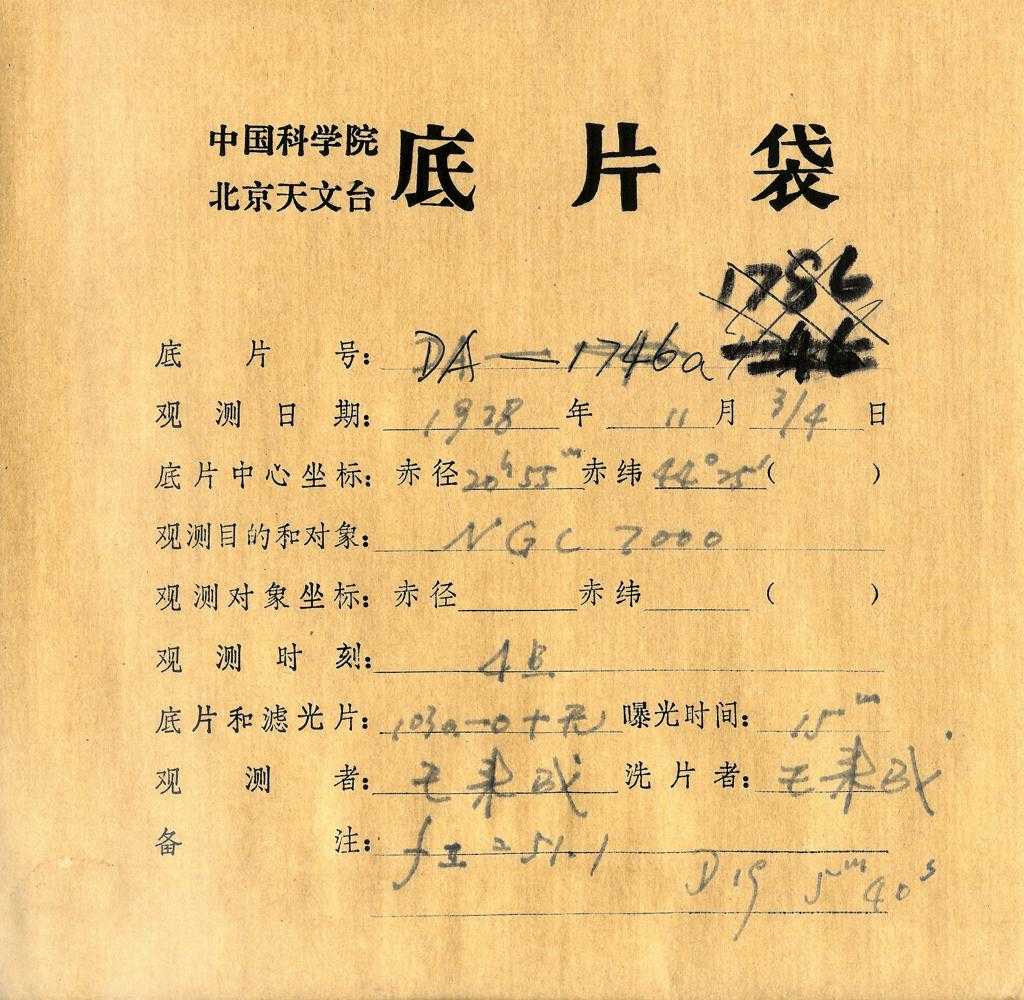 中国科学院
北京天文台
底片袋
1786
底片号: DA—1746a
观测日期: 1978年 11月 3/4日
底片中心坐标: 赤径20ʰ55ᵐ赤纬44°25′( )
观测目的和对象: NGC 7000
观测对象坐标: 赤径 赤纬 ( )
观测时刻:
底片和滤光片: 103a-O+无 曝光时间: 15ᵐ
观测者: 洗片者:
备注: 51.1
D19 5ᵐ40ˢ